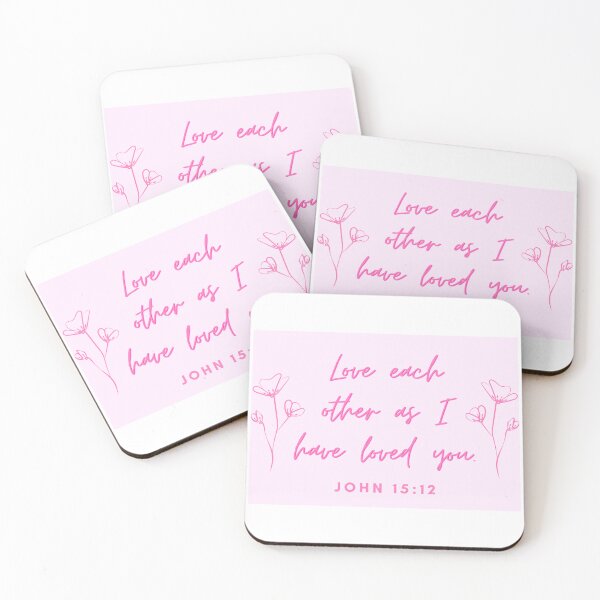 Love each
other as I
have loved you.
Love each
other as I
have loved you.
Love each
other as I
have loved
JOHN 15:
Love each
other as I
have loved you.
JOHN 15:12